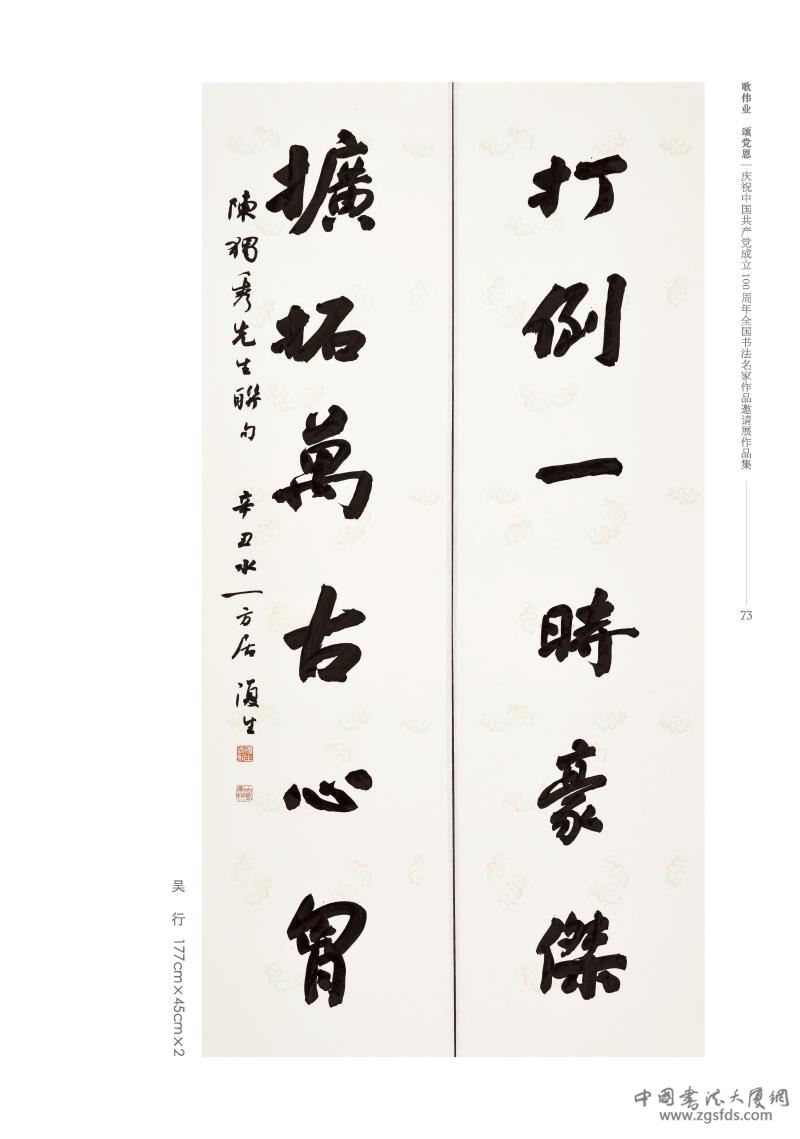 打倒一時豪傑
擴拓萬古心胷
陳獨秀先生聯句 辛丑水一方居 復生
歌伟业 颂党恩 | 庆祝中国共产党成立100周年全国书法名家作品邀请展作品集
73
吴 行 177cm×45cm×2
中國書法大廈網
www.zgsfds.com